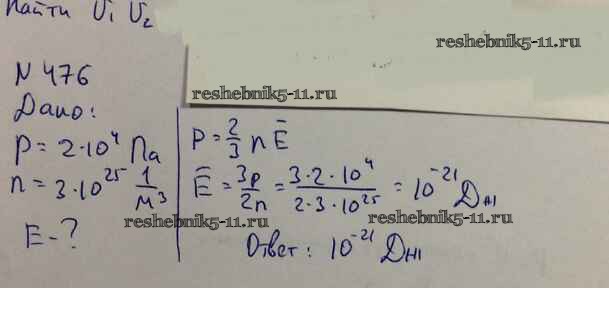 Найти U₁ U₂
reshebnik5-11.ru
N 476
reshebnik5-11.ru
Дано:
P = 2·10⁴ Па
n = 3·10²⁵ 1/м³
E - ?
P = 2/3 n Ē
Ē = 3p/2n = 3·2·10⁴/2·3·10²⁵ = 10⁻²¹ Дж
reshebnik5-11.ru
reshebnik5-11.ru
Ответ: 10⁻²¹ Дж